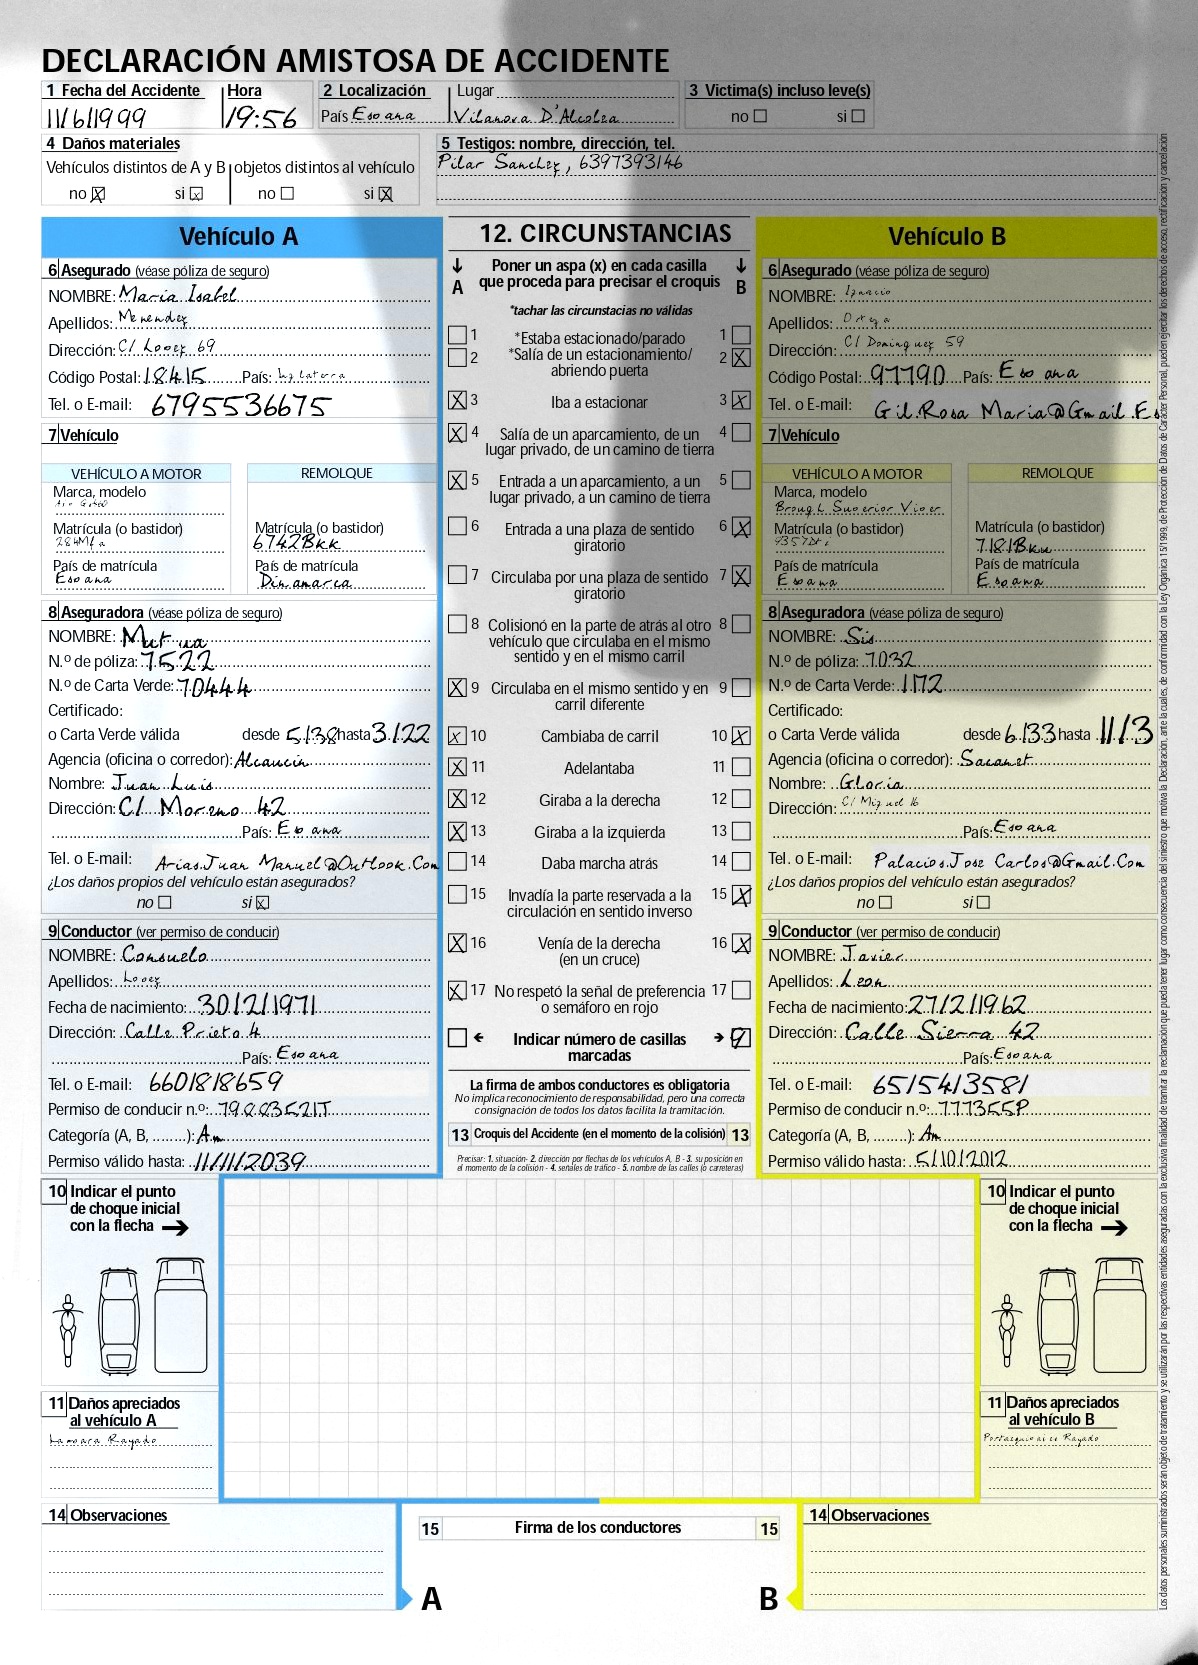 DECLARACIÓN AMISTOSA DE ACCIDENTE
1 Fecha del Accidente Hora 2 Localización Lugar 3 Victima(s) incluso leve(s)
11/6/1999 19:56 País España Vilanova D'Alcolea no si
4 Daños materiales 5 Testigos: nombre, dirección, tel.
Vehículos distintos de A y B objetos distintos al vehículo Pilar Sanchez, 6397393146
no X si no si X
Vehículo A 12. CIRCUNSTANCIAS Vehículo B
Poner un aspa (x) en cada casilla que proceda para precisar el croquis
A B
*tachar las circunstacias no válidas
6 Asegurado (véase póliza de seguro)
NOMBRE: Maria Isabel
Apellidos: Menendez
Dirección: C/ Lopez 69
Código Postal: 18415 País: Inglaterra
Tel. o E-mail: 6795536675
7 Vehículo
VEHÍCULO A MOTOR REMOLQUE
Marca, modelo
Matrícula (o bastidor) Matrícula (o bastidor)
6742Bkk
País de matrícula País de matrícula
España Dinamarca
8 Aseguradora (véase póliza de seguro)
NOMBRE: Mutua
N.º de póliza: 7522
N.º de Carta Verde: 70444
Certificado:
o Carta Verde válida desde 5/38 hasta 3/22
Agencia (oficina o corredor): Alcaucin
Nombre: Juan Luis
Dirección: C/ Moreno 42
País: España
Tel. o E-mail: Arias.Juan Manuel@Outlook.Com
¿Los daños propios del vehículo están asegurados?
no si X
9 Conductor (ver permiso de conducir)
NOMBRE: Consuelo
Apellidos: Lopez
Fecha de nacimiento: 30/2/1971
Dirección: Calle Prieto 4
País: España
Tel. o E-mail: 6601818659
Permiso de conducir n.º: 79883521T
Categoría (A, B, ........): Am
Permiso válido hasta: 11/11/2039
1 *Estaba estacionado/parado 1
2 *Salía de un estacionamiento/ abriendo puerta 2 X
X 3 Iba a estacionar 3 X
X 4 Salía de un aparcamiento, de un lugar privado, de un camino de tierra 4
X 5 Entrada a un aparcamiento, a un lugar privado, a un camino de tierra 5
6 Entrada a una plaza de sentido giratorio 6 X
7 Circulaba por una plaza de sentido giratorio 7 X
8 Colisionó en la parte de atrás al otro vehículo que circulaba en el mismo sentido y en el mismo carril 8
X 9 Circulaba en el mismo sentido y en carril diferente 9
X 10 Cambiaba de carril 10 X
X 11 Adelantaba 11
X 12 Giraba a la derecha 12
X 13 Giraba a la izquierda 13
14 Daba marcha atrás 14
15 Invadía la parte reservada a la circulación en sentido inverso 15 X
X 16 Venía de la derecha (en un cruce) 16 X
X 17 No respetó la señal de preferencia o semáforo en rojo 17
Indicar número de casillas marcadas 9
La firma de ambos conductores es obligatoria
No implica reconocimiento de responsabilidad, pero una correcta
consignación de todos los datos facilita la tramitación.
13 Croquis del Accidente (en el momento de la colisión) 13
Precisar: 1. situación- 2. dirección por flechas de los vehículos A, B - 3. su posición en
el momento de la colisión - 4. señales de tráfico - 5. nombre de las calles (o carreteras)
6 Asegurado (véase póliza de seguro)
NOMBRE: Ignacio
Apellidos: Ortega
Dirección: C/ Dominguez 59
Código Postal: 97790 País: España
Tel. o E-mail: Gil.Rosa Maria@Gmail.Es
7 Vehículo
VEHÍCULO A MOTOR REMOLQUE
Marca, modelo
Brough Superior Viper
Matrícula (o bastidor) Matrícula (o bastidor)
7181Bku
País de matrícula País de matrícula
España España
8 Aseguradora (véase póliza de seguro)
NOMBRE: Sis
N.º de póliza: 7032
N.º de Carta Verde: 1172
Certificado:
o Carta Verde válida desde 6/33 hasta 11/3
Agencia (oficina o corredor): Sacanet
Nombre: Gloria
Dirección: C/ Miguel 16
País: España
Tel. o E-mail: Palacios.Jose Carlos@Gmail.Com
¿Los daños propios del vehículo están asegurados?
no si
9 Conductor (ver permiso de conducir)
NOMBRE: Javier
Apellidos: Leon
Fecha de nacimiento: 27/2/1962
Dirección: Calle Sierra 42
País: España
Tel. o E-mail: 6515413581
Permiso de conducir n.º: 777355P
Categoría (A, B, ........): Am
Permiso válido hasta: 5/10/2012
10 Indicar el punto de choque inicial con la flecha
10 Indicar el punto de choque inicial con la flecha
11 Daños apreciados al vehículo A
Lampara Rayado
11 Daños apreciados al vehículo B
Portaequipajes Rayado
14 Observaciones
15 Firma de los conductores 15
14 Observaciones
A B
Los datos personales suministrados serán objeto de tratamiento y se utilizarán por las respectivas entidades aseguradas con la exclusiva finalidad de tramitar la reclamación que pueda tener lugar como consecuencia del siniestro que motiva la Declaración, ante la cuales, de conformidad con la Ley Orgánica 15/1999, de Protección de Datos de Carácter Personal, pueden ejercitar los derechos de acceso, rectificación y cancelación